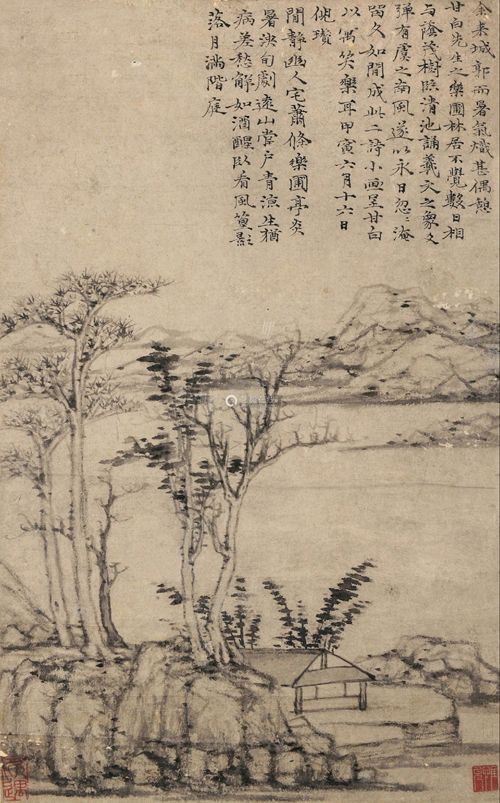 余来城郭而暑氣熾甚偶憩
甘白先生之樂圃林居不覺數日相
与蔭茂樹臨清池誦羲文之象久
彈有虞之南風遂以永日忽〻淹
留久如閒成此二詩小畫呈甘白
以偶笑樂耳甲寅六月十六日
倪瓚
閒靜幽人宅蕭條樂圃亭炎
暑浹旬劇遠山當户青涼生猶
病差愁解如酒醒卧看風篁影
落月滿階庭